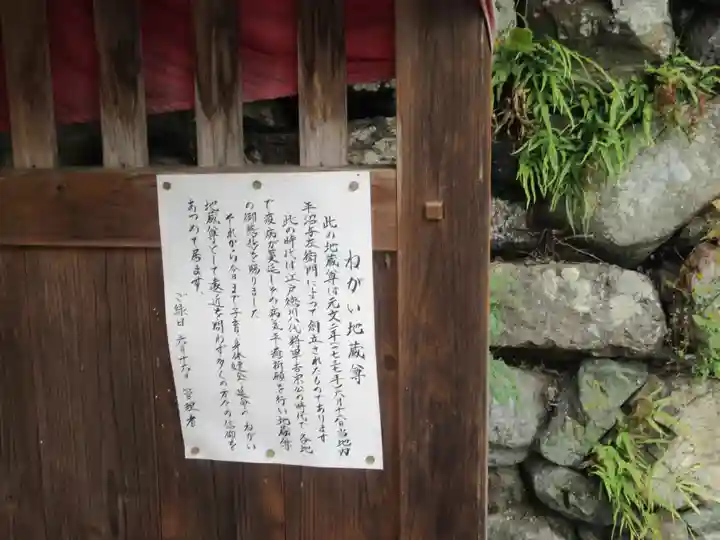 ねがい地蔵尊
此の地蔵尊は元文二年(一七三七年)六月十六日当地内
平沼与左衛門によって創立されたものであります
此の時代は江戸徳川八代将軍吉宗公の時代で各地
で疫病が蔓延しその病気平癒祈願を行い地蔵尊
の御慈悲を賜りました
それから今日まで子育身体健全延命のねがい
地蔵尊として遠近を問わず多くの方々の信仰を
あつめて居ます。
ご縁日 六月十六日 管理者